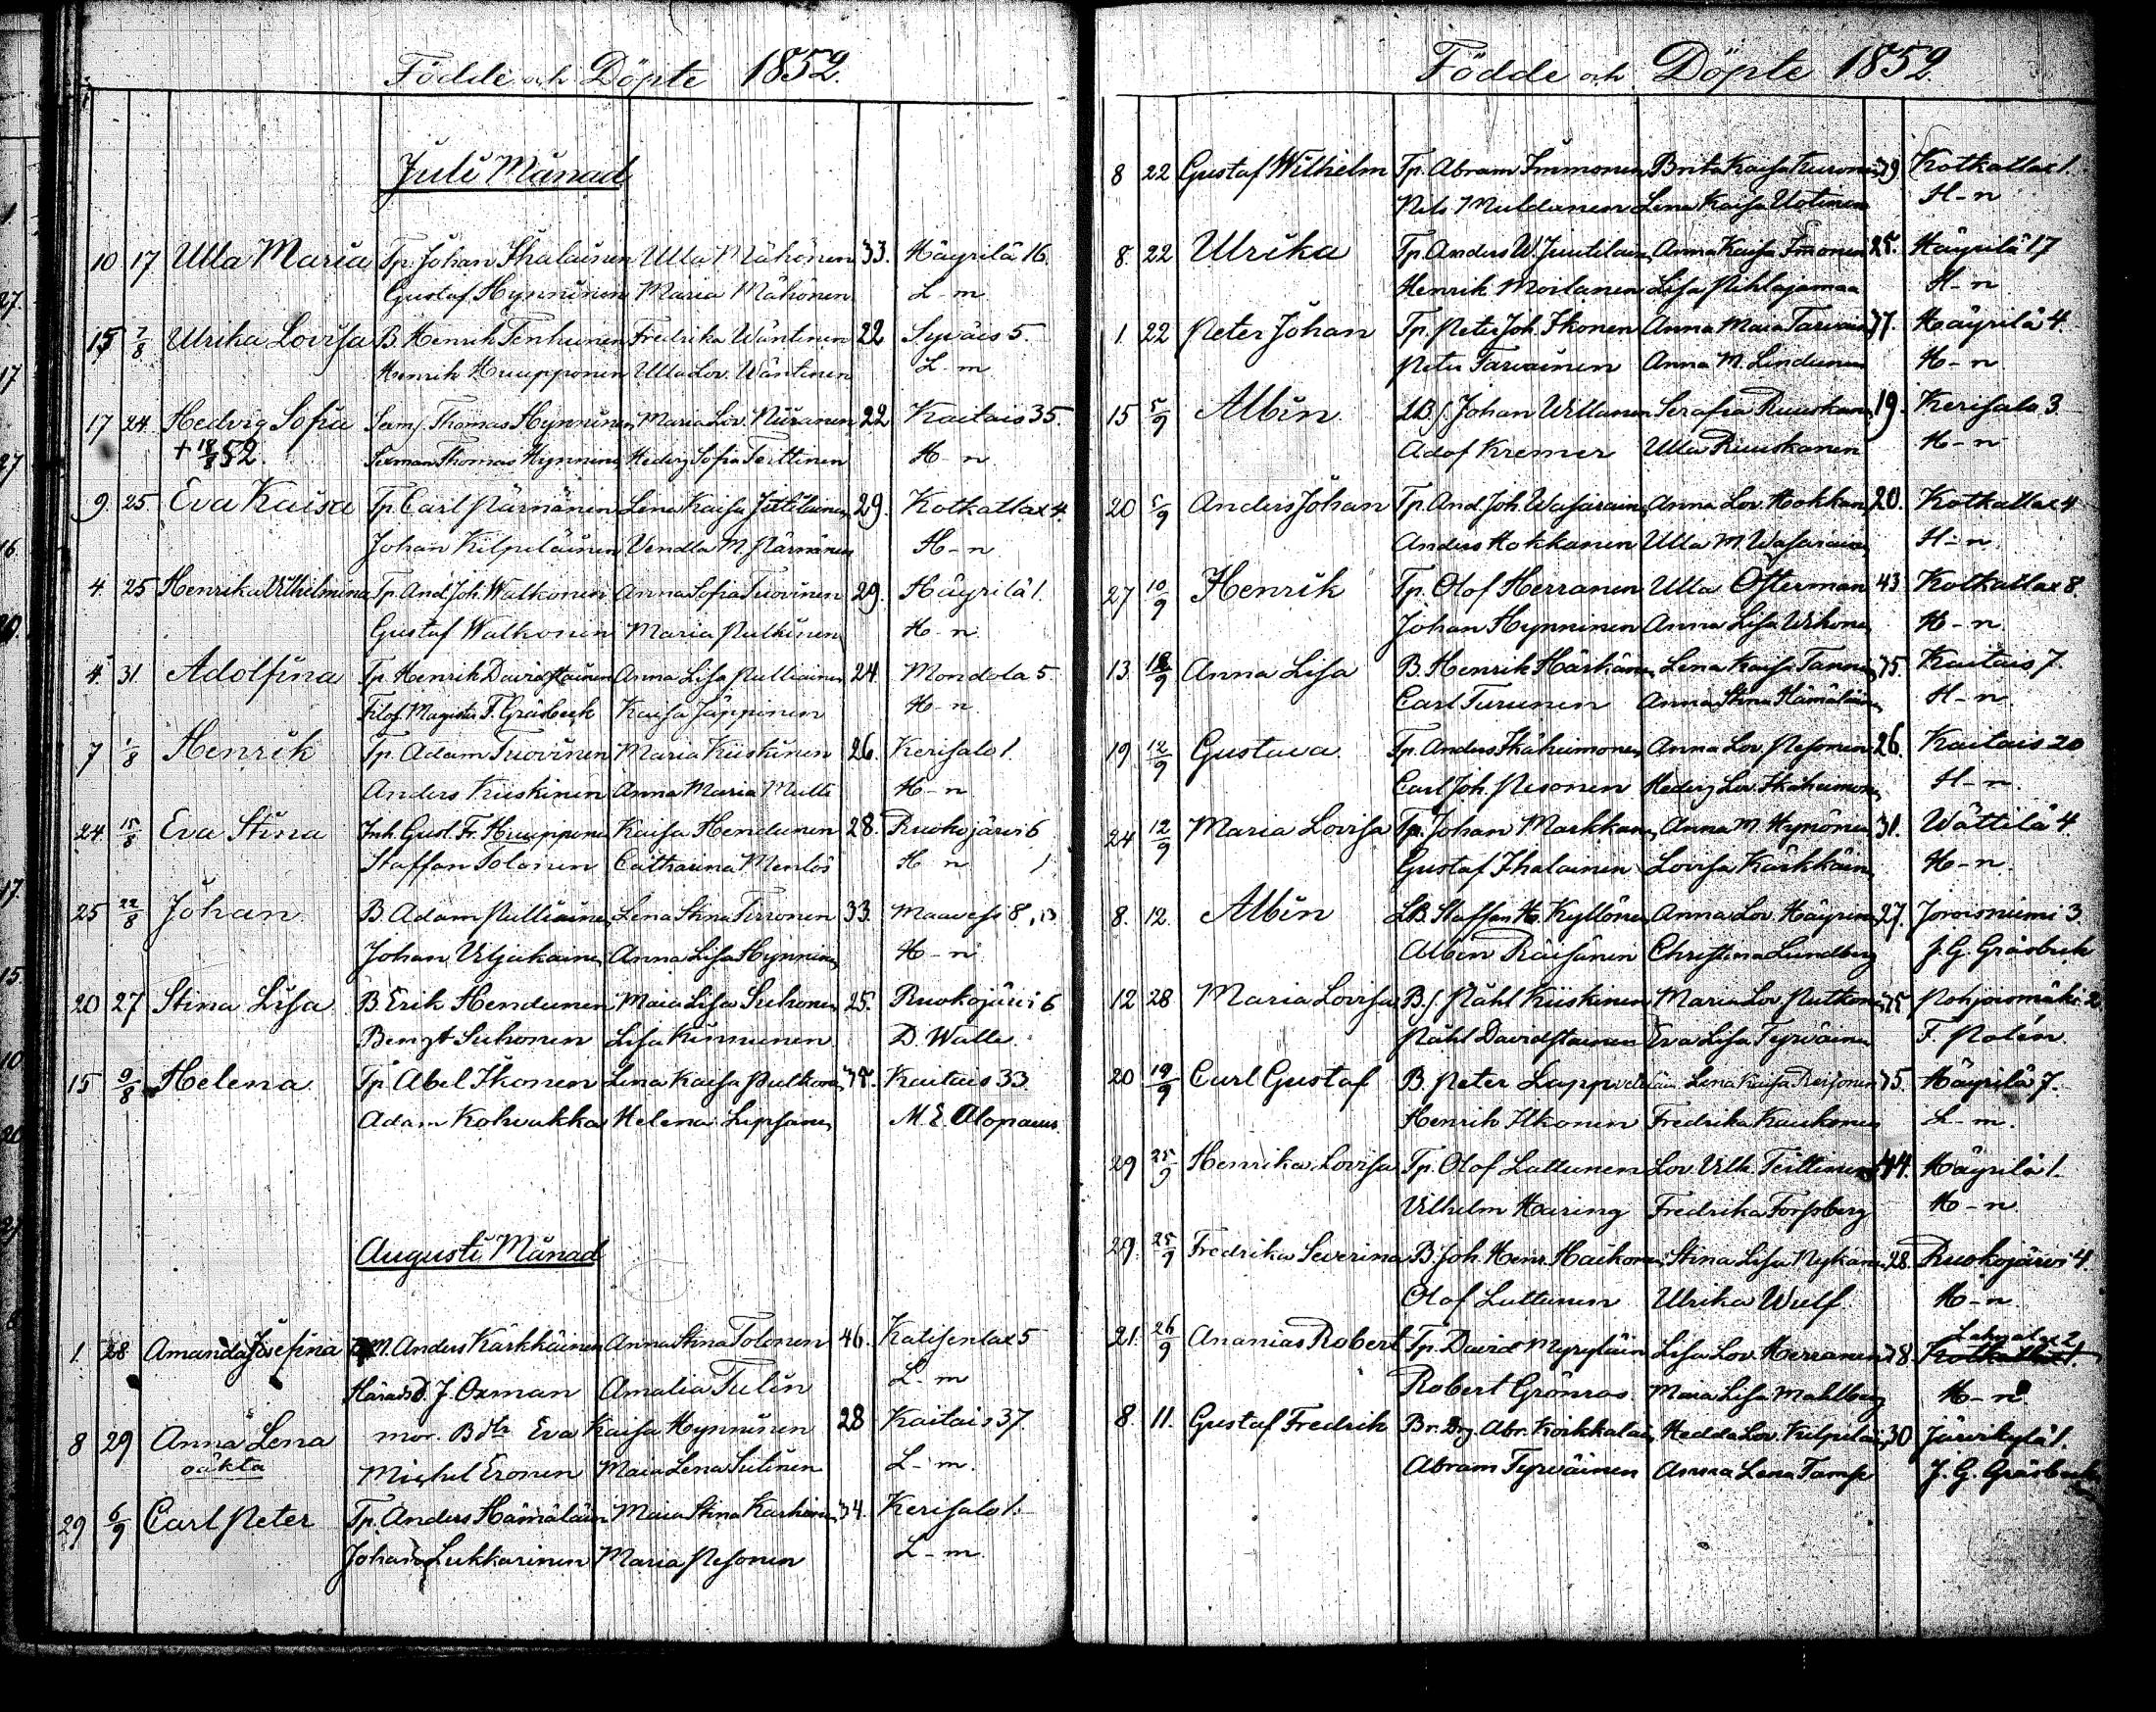 Födde och Döpte 1852.
Juli Månad
10 17 Ulla Maria Tp. Johan Ihalainen Ulla Mähönen 33. Häyrilä 16.
Gustaf Hynninen Maria Mähönen L-m
15 7/8 Ulrika Lovisa B. Henrik Tenhunen Fredrika Wäntinen 22 Syväis 5.
Henrik Huupponen Ulla Lov. Wäntinen L-m
17 24 Hedvig Sofia Thomas Hynninen Maria Lov. Niiranen 22 Kaitais 35.
+ 18/8 52. Thomas Hynninen Hedvig Sofia Teittinen H-n
9. 25 Eva Kaisa Tp. Carl Pärnänen Lena Kaisa 29. Kotkatlax 4.
Johan Kilpeläinen Vendla M. Pärnänen H-n
4. 25 Henrika Vilhelmina Tp. And. Joh. Walkonen Anna Sofia Tuovinen 29. Häyrilä 1.
Gustaf Walkonen Maria Pulkinen H-n.
4. 31. Adolfina Tp. Henrik Davidstainen Anna Lisa Pulliainen 24. Mondola 5.
Filos. Magister F. Gräsbeck Kaisa Jäppinen H-n.
7 1/8 Henrik Tp. Adam Tuovinen Maria Kiiskinen 26. Kerisalo 1.
Anders Kiiskinen Anna Maria Multi H-n
24. 15/8 Eva Stina Inh. Gust. Fr. Huupponen Kaisa Hendunen 28. Ruokojärvi 6
Staffan Tolonen Catharina H-n
25 22/8 Johan B. Adam Pulliainen Lena Stina Tirronen 33. Maavesi 8, 13
Johan Viljakainen Anna Lisa Hynninen H-n.
20 27 Stina Lisa B. Erik Hendunen Maia Lisa Suhonen 25. Ruokojärvi 6
Bengt Suhonen Lisa Kinnunen D. Walle.
15 9/8 Helena Tp. Abel Ikonen Lena Kaisa Pulkonen Kaitais 33
Adam Kohvakka Helena Lipsanen M. E. Alopaeus.
Augusti Månad
1. 28 Amanda Josefina M. Anders Kärkkäinen Anna Stina Tolonen 46. Katisenlax 5
J. Oxman Amalia Tulin L-m
8 29 Anna Lena mor. Bdtr Eva Kaisa Hynninen 28 Kaitais 37.
oäkta Michel Eronen Maia Lena Sutinen L-m.
29 6/9 Carl Peter Tp. Anders Hämäläin Maia Stina 34. Kerisalo 1.
Johan Lukkarinen Maria Pesonen L-m.
Födde och Döpte 1852.
8 22 Gustaf Wilhelm Tp. Abram Immonen Brita Kaisa Turonen 39 Kotkatlax 1.
Nils Muldanen Lena Kaisa Uotinen H-n
8. 22 Ulrika Tp. Anders W. Juutilain Anna Kaisa Imonen 25. Häyrilä 17
Henrik Moilanen Lisa Pihlajamaa H-n
1. 22 Peter Johan Tp. Peter Joh. Ikonen Anna Maia Tarvain 37. Häyrilä 4.
Peter Tarvainen Anna M. Lindunen H-n.
15 5/9 Albin Johan Villanen Serafia Ruuskanen 19. Kerisalo 3.
Adof Kremer Ulla Ruuskanen H-n
20 5/9 Anders Johan Tp. And. Joh. Wasarainen Anna Lov. Hokkan 20. Kotkatlax 4
Anders Hokkanen Ulla M. Wasarainen H-n.
27 10/9 Henrik Tp. Olof Herranen Ulla Österman 43 Kotkatlax 8.
Johan Hynninen Anna Lisa Vihonen H-n.
13 12/9 Anna Lisa B. Henrik Härkänen Lena Kaisa Tanninen 35. Kaitais 7.
Carl Turunen Anna Stina Hämäläinen H-n.
19 12/9 Gustava. Tp. Anders Ikäheimonen Anna Lov. Pesonen 26. Kaitais 20
Carl Joh. Pesonen Hedvig Lov. Ikäheimonen H-n.
24 12/9 Maria Lovisa Tp. Johan Markkanen Anna M. Hynönen 31. Wättilä 4.
Gustaf Ihalainen Lovisa Kärkkäin H-n.
8. 12. Albin LB. Staffan H. Kyllönen Anna Lov. Häyrinen 27. Joroisniemi 3
Albin Räisänen Christina Lundberg J. G. Gräsbeck
12 28 Maria Lovisa B.s. Påhl Kiiskinen Maria Lov. Putkonen 35 Pohjoismäki 2.
Påhl Davidstainen Eva Lisa Tyrväinen F. Polén
20 19/9 Carl Gustaf B. Peter Lappveteläin Lena Kaisa Reijonen 35. Häyrilä 7.
Henrik Ikonen Fredrika Kaukonen L-m.
29 25/9 Henrika Lovisa Tp. Olof Luttunen Lov. Vilh. Teittinen 44. Häyrilä 1.
Vilhelm Haring Fredrika Forssberg H-n.
29. 25/9 Fredrika Severina B. Joh. Henr. Haikonen Stina Lisa Nykänen 28. Ruokojärvi 4.
Olof Luttunen Ulrika Wulf H-n
21. 26/9 Ananias Robert Tp. David Myryläin Lisa Lov. Herranen 38. Kotkatlax 1. Lahnalax 2
Robert Grönroos Maia Lisa Mahlberg H-n.
8. 11. Gustaf Fredrik Br. Drg. Abr. Koikkalain Hedda Lov. Kilpeläin 30 Järvikylä 1.
Abram Tyrväinen Anna Lena Tamse J. G. Gräsbeck